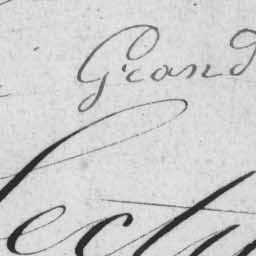 Grand
lectu